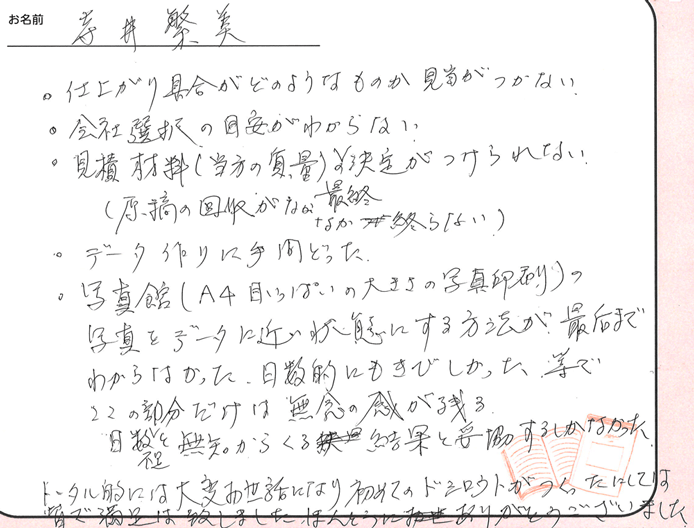 お名前 寺井 繁美
。仕上がり具合がどのようなものか 見当がつかない
。会社選択の目安がわからない
。見積 材料(当方の頁、量)の決定がつけられない
(原稿の回収がなかなか最終 終らない)
。データ作りに手間どった
。写真館(A4目いっぱいの大きさの写真印刷)の
写真をデータに近い状態にする方法が、最后まで
わからなかった、日数的にもきびしかった、等で
ここの部分だけは 無念の感が残る
日数と 無知からくる 結果と妥協するしかなかった
トータル的には大変お世話になり初めてのドシロウトがつくったにしては
皆で満足は致しました ほんとうに ありがとうございました